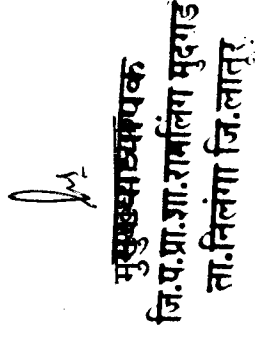 मुख्याध्यापक
जि.प.प्रा.शा.रामलिंग मुदगड
ता.निलंगा जि.लातूर